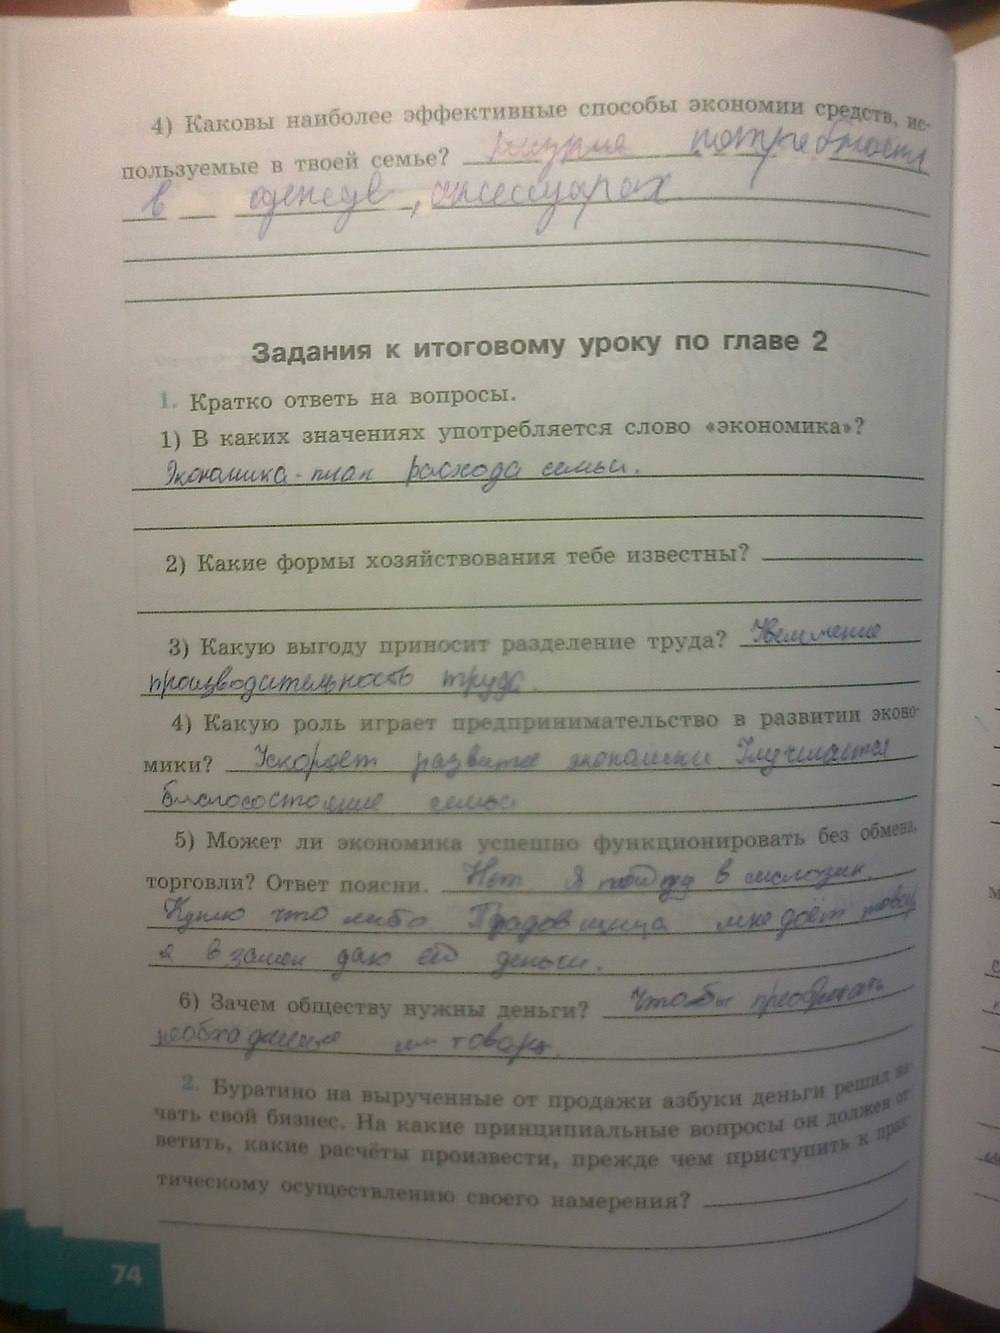 4) Каковы наиболее эффективные способы экономии средств, ис-
пользуемые в твоей семье? потребности
в одежде, аксессуарах
Задания к итоговому уроку по главе 2
1. Кратко ответь на вопросы.
1) В каких значениях употребляется слово «экономика»?
Экономика - план расхода семьи.
2) Какие формы хозяйствования тебе известны?
3) Какую выгоду приносит разделение труда? Увеличение
производительность труда.
4) Какую роль играет предпринимательство в развитии эконо-
мики? Ускоряет развитие экономики Улучшается
благосостояние семьи
5) Может ли экономика успешно функционировать без обмена,
торговли? Ответ поясни. Нет. Я пойду в магазин.
Куплю что либо. Продавщица мне даёт товар
я в замен даю ей деньги.
6) Зачем обществу нужны деньги? Чтобы преобретать
необходимые им товары.
2. Буратино на вырученные от продажи азбуки деньги решил на-
чать свой бизнес. На какие принципиальные вопросы он должен от-
ветить, какие расчёты произвести, прежде чем приступить к прак-
тическому осуществлению своего намерения?
74